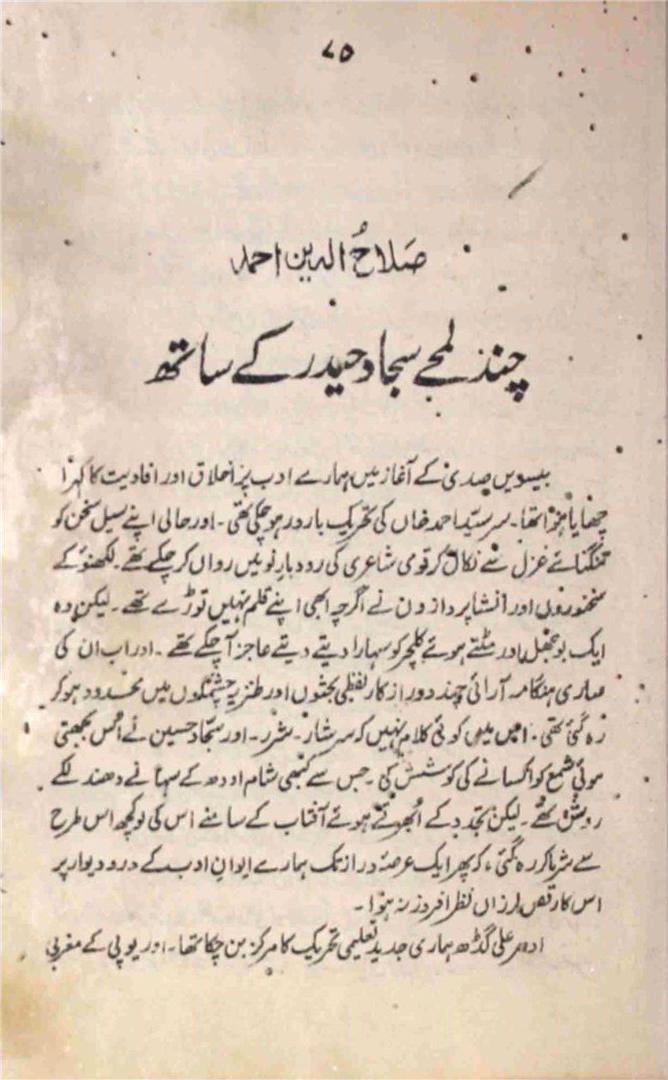 ۷۵
صلاح الدین احمد
چند لمحے سجاد حیدر کے ساتھ
بیسویں صدی کے آغاز میں ہمارے ادب پر اخلاق اور افادیت کا کہرا
چھایا ہوا تھا۔ سرسید احمد خاں کی تحریک بارور ہو چکی تھی۔ اور حالی اپنے سیل سخن کو
تنگنائے غزل سے نکال کر قومی شاعری کی رودبارِ نو میں رواں کر چکے تھے۔ لکھنؤ کے
سخنوروں اور انشا پردازوں نے اگرچہ ابھی اپنے قلم نہیں توڑے تھے۔ لیکن وہ
ایک بوجھل اور مٹتے ہوئے کلچر کو سہارا دیتے دیتے عاجز آ چکے تھے۔ اور اب ان کی
ساری ہنگامہ آرائی چند دور از کار لفظی بحثوں اور طنزیہ چشمکوں میں محدود ہو کر
رہ گئی تھی۔ اس میں کوئی کلام نہیں کہ سرشار۔ شرر۔ اور سجاد حسین نے اس بجھتی
ہوئی شمع کو اکسانے کی کوشش کی۔ جس سے کبھی شام اودھ کے سہانے دھندلکے
روشن تھے۔ لیکن تجدد کے ابھرتے ہوئے آفتاب کے سامنے اس کی لو کچھ اس طرح
سے شرما کر رہ گئی، کہ پھر ایک عرصۂ دراز تک ہمارے ایوانِ ادب کے در و دیوار پر
اس کا رقصِ لرزاں نظر افروز نہ ہوا۔
ادھر علی گڈھ ہماری جدید تعلیمی تحریک کا مرکز بن چکا تھا۔ اور یوپی کے مغربی